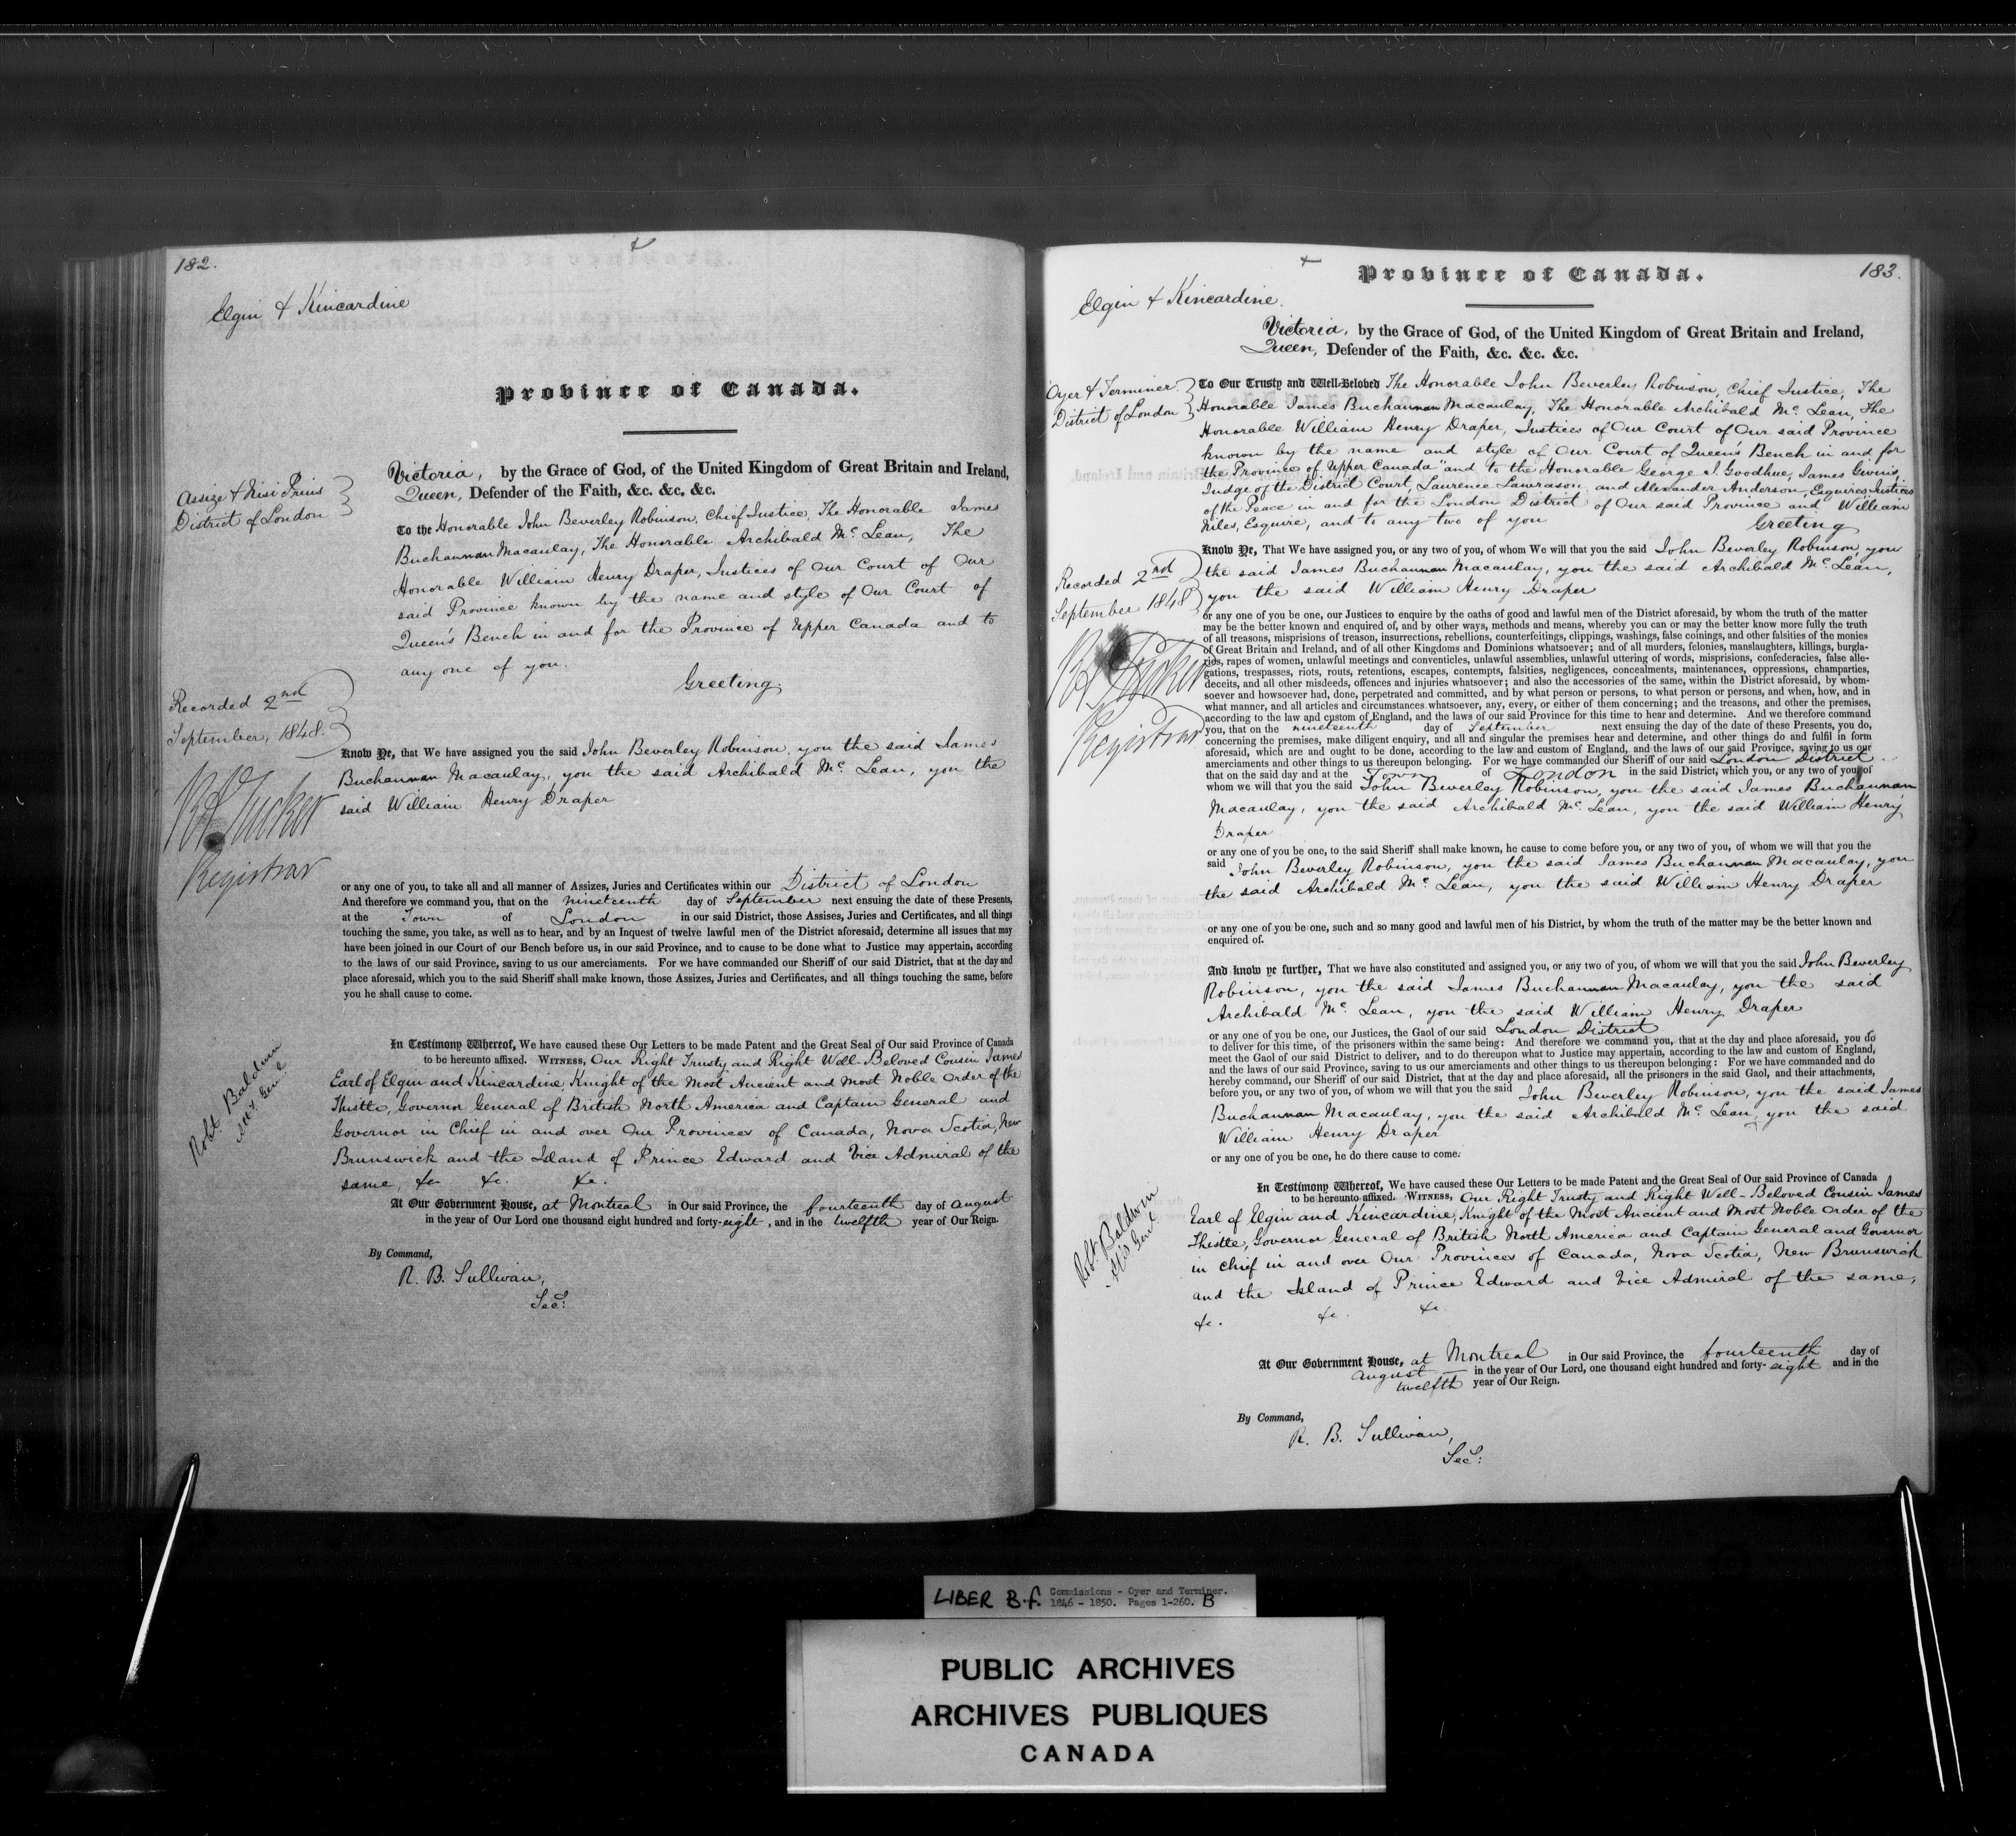 182.
Elgin & Kincardine
Province of Canada.
Assize & Nisi Prius
District of London
Victoria, by the Grace of God, of the United Kingdom of Great Britain and Ireland,
Queen, Defender of the Faith, &c. &c. &c.
To the Honorable John Beverley Robinson, Chief Justice, The Honorable James
Buchannan Macaulay, The Honorable Archibald Mc Lean, The
Honorable William Henry Draper, Justices of Our Court of Our
said Province known by the name and style of Our Court of
Queen's Bench in and for the Province of Upper Canada and to
any one of you.
Greeting.
Recorded 2nd
September, 1848.
R A Tucker
Registrar
Know Ye, that We have assigned you the said John Beverley Robinson, you the said James
Buchannan Macaulay, you the said Archibald Mc Lean, you the
said William Henry Draper
or any one of you, to take all and all manner of Assizes, Juries and Certificates within our District of London
And therefore we command you, that on the nineteenth day of September next ensuing the date of these Presents,
at the Town of London in our said District, those Assises, Juries and Certificates, and all things
touching the same, you take, as well as to hear, and by an Inquest of twelve lawful men of the District aforesaid, determine all issues that may
have been joined in our Court of our Bench before us, in our said Province, and to cause to be done what to Justice may appertain, according
to the laws of our said Province, saving to us our amerciaments. For we have commanded our Sheriff of our said District, that at the day and
place aforesaid, which you to the said Sheriff shall make known, those Assizes, Juries and Certificates, and all things touching the same, before
you he shall cause to come.
Robt. Baldwin
Att'y Genl
In Testimony Whereof, We have caused these Our Letters to be made Patent and the Great Seal of Our said Province of Canada
to be hereunto affixed. WITNESS, Our Right Trusty and Right Well-Beloved Cousin James
Earl of Elgin and Kincardine, Knight of the Most Ancient and Most Noble Order of the
Thistle, Governor General of British North America and Captain General and
Governor in Chief in and over Our Provinces of Canada, Nova Scotia, New
Brunswick and the Island of Prince Edward and Vice Admiral of the
same, &c. &c. &c.
At Our Government House, at Montreal in Our said Province, the fourteenth day of August
in the year of Our Lord one thousand eight hundred and forty-eight, and in the twelfth year of Our Reign.
By Command,
R. B. Sullivan,
Secy:
183.
Province of Canada.
Elgin & Kincardine.
Victoria, by the Grace of God, of the United Kingdom of Great Britain and Ireland,
Queen, Defender of the Faith, &c. &c. &c.
Oyer & Terminer
District of London
To Our Trusty and Well-Beloved The Honorable John Beverley Robinson, Chief Justice, The
Honorable James Buchannan Macaulay, The Honorable Archibald Mc Lean, The
Honorable William Henry Draper, Justices of Our Court of Our said Province
known by the name and style of Our Court of Queen's Bench in and for
the Province of Upper Canada" and to the Honorable George J. Goodhue, James Givins,
Judge of the District Court, Laurence Lawrason, and Alexander Anderson, Esquires, Justices
of the Peace in and for the London District of Our said Province and William
Niles, Esquire, and to any two of you
Greeting
Recorded 2nd
September 1848
R A Tucker
Registrar
Know Ye, That We have assigned you, or any two of you, of whom We will that you the said John Beverley Robinson, you
the said James Buchannan Macaulay, you the said Archibald Mc Lean,
you the said William Henry Draper
or any one of you be one, our Justices to enquire by the oaths of good and lawful men of the District aforesaid, by whom the truth of the matter
may be the better known and enquired of, and by other ways, methods and means, whereby you can or may the better know more fully the truth
of all treasons, misprisions of treason, insurrections, rebellions, counterfeitings, clippings, washings, false coinings, and other falsities of the monies
of Great Britain and Ireland, and of all other Kingdoms and Dominions whatsoever; and of all murders, felonies, manslaughters, killings, burgla-
ries, rapes of women, unlawful meetings and conventicles, unlawful assemblies, unlawful uttering of words, misprisions, confederacies, false alle-
gations, trespasses, riots, routs, retentions, escapes, contempts, falsities, negligences, concealments, maintenances, oppressions, champarties,
deceits, and all other misdeeds, offences and injuries whatsoever; and also the accessories of the same, within the District aforesaid, by whom-
soever and howsoever had, done, perpetrated and committed, and by what person or persons, to what person or persons, and when, how, and in
what manner, and all articles and circumstances whatsoever, any, every, or either of them concerning; and the treasons, and other the premises,
according to the law and custom of England, and the laws of our said Province for this time to hear and determine. And we therefore command
you, that on the nineteenth day of September next ensuing the day of the date of these Presents, you do,
concerning the premises, make diligent enquiry, and all and singular the premises hear and determine, and other things do and fulfil in form
aforesaid, which are and ought to be done, according to the law and custom of England, and the laws of our said Province, saving to us our
amerciaments and other things to us thereupon belonging. For we have commanded our Sheriff of our said London District
that on the said day and at the Town of London in the said District, which you, or any two of you, of
whom we will that you the said John Beverley Robinson, you the said James Buchannan
Macaulay, you the said Archibald Mc Lean, you the said William Henry
Draper
or any one of you be one, to the said Sheriff shall make known, he cause to come before you, or any two of you, of whom we will that you the
said John Beverley Robinson, you the said James Buchannan Macaulay, you
the said Archibald Mc Lean, you the said William Henry Draper
or any one of you be one, such and so many good and lawful men of his District, by whom the truth of the matter may be the better known and
enquired of.
And know ye further, That we have also constituted and assigned you, or any two of you, of whom we will that you the said John Beverley
Robinson, you the said James Buchannan Macaulay, you the said
Archibald Mc Lean, you the said William Henry Draper
or any one of you be one, our Justices, the Gaol of our said London District
to deliver for this time, of the prisoners within the same being: And therefore we command you, that at the day and place aforesaid, you do
meet the Gaol of our said District to deliver, and to do thereupon what to Justice may appertain, according to the law and custom of England,
and the laws of our said Province, saving to us our amerciaments and other things to us thereupon belonging: For we have commanded and do
hereby command, our Sheriff of our said District, that at the day and place aforesaid, all the prisoners in the said Gaol, and their attachments,
before you, or any two of you, of whom we will that you the said John Beverley Robinson, you the said James
Buchannan Macaulay, you the said Archibald Mc Lean, you the said
William Henry Draper
or any one of you be one, he do there cause to come.
Robt. Baldwin
Att'y Genl
In Testimony Whereof, We have caused these Our Letters to be made Patent and the Great Seal of Our said Province of Canada
to be hereunto affixed. WITNESS, Our Right Trusty and Right Well-Beloved Cousin James
Earl of Elgin and Kincardine, Knight of the Most Ancient and Most Noble Order of the
Thistle, Governor General of British North America and Captain General and Governor
in Chief in and over Our Provinces of Canada, Nova Scotia, New Brunswick
and the Island of Prince Edward and Vice Admiral of the same,
&c. &c. &c.
At Our Government House, at Montreal in Our said Province, the fourteenth day of
August in the year of Our Lord, one thousand eight hundred and forty-eight and in the
twelfth year of Our Reign.
By Command,
R. B. Sullivan,
Secy:
LIBER B.f. Commissions - Oyer and Terminer.
1846 - 1850. Pages 1-260. B
PUBLIC ARCHIVES
ARCHIVES PUBLIQUES
CANADA